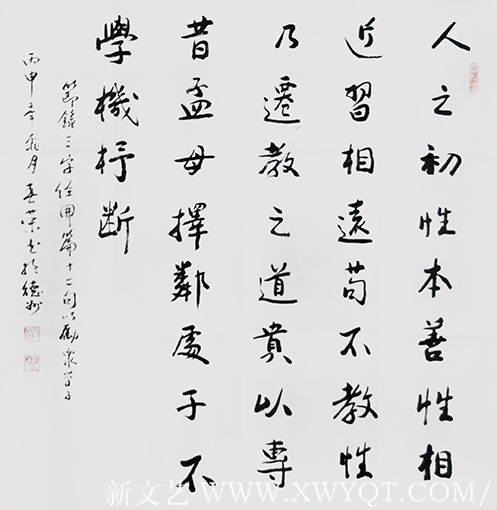 人之初性本善性相
近習相遠苟不教性
乃遷教之道貴以專
昔孟母擇鄰處子不
學機杼斷
節錄三字经開篇十二句以勸眾学子
丙申年月春荣书於德州
新文艺 WWW.XWYQT.COM/